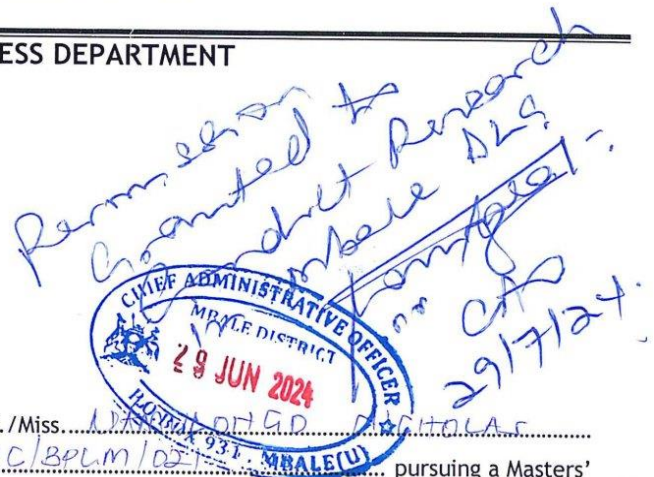 ESS DEPARTMENT
Permission
Granted to
Conduct Research
in Mbale DLG.
for CAO
29/7/24.
CHIEF ADMINISTRATIVE OFFICER
MBALE DISTRICT
29 JUN 2024
P.O. BOX 931, MBALE (U)
/Miss. NICHOLAS
C/BPLM/021 pursuing a Masters'